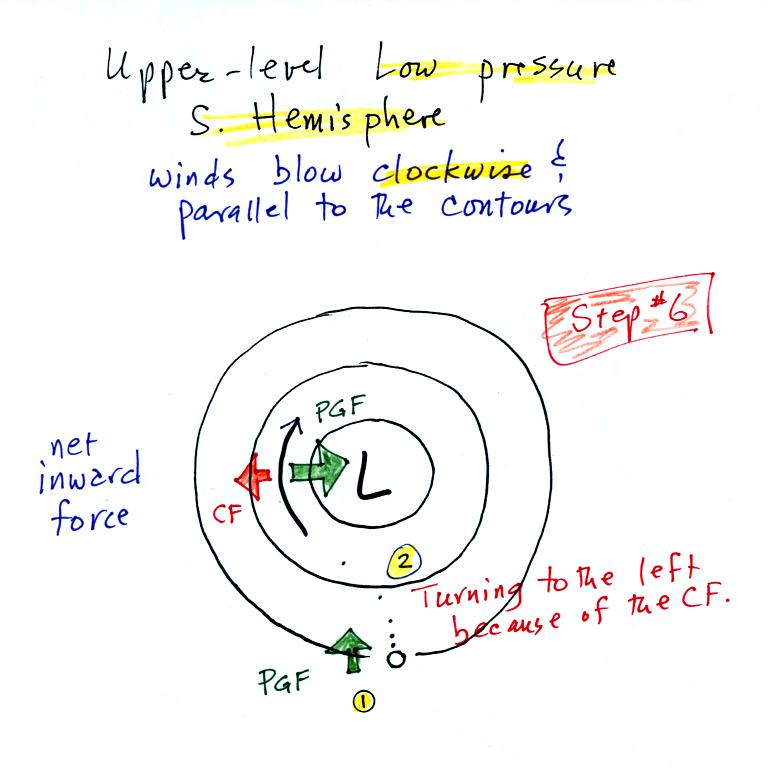 Upper-level Low pressure
S. Hemisphere
winds blow clockwise &
parallel to the contours
Step #6
PGF
net
inward
force
L
CF
2
Turning to the left
because of the CF.
PGF
1